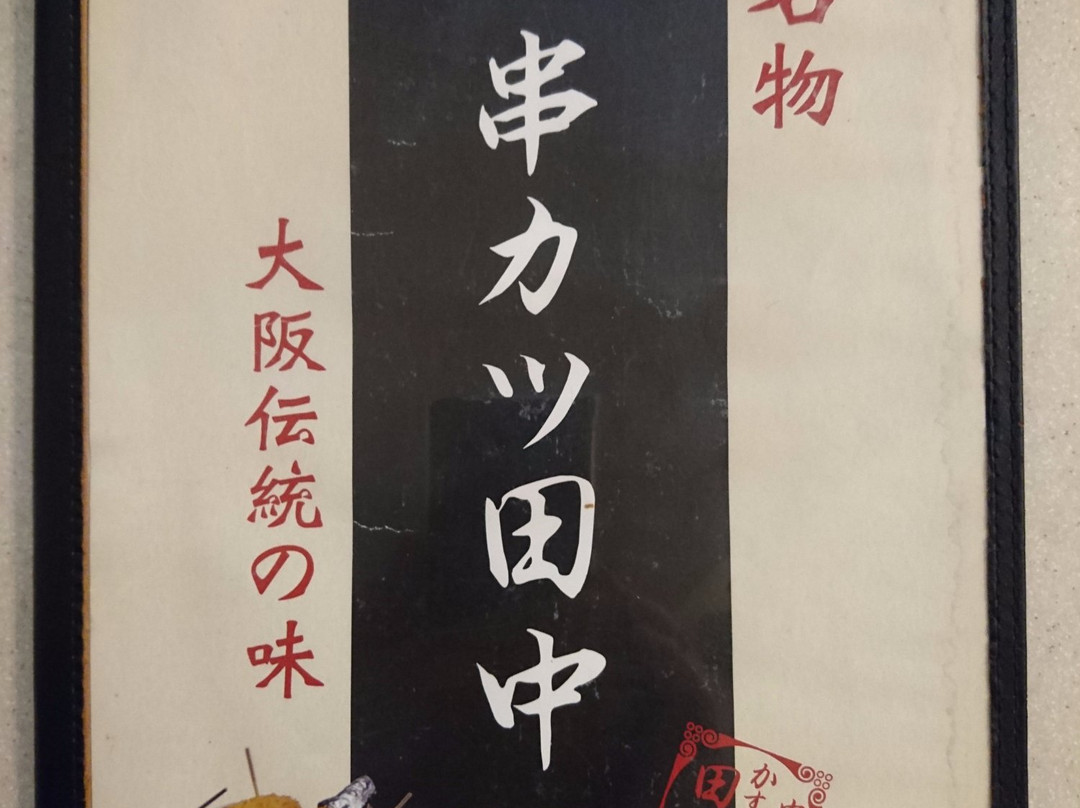 名物
串カツ田中
大阪伝統の味
田
かす